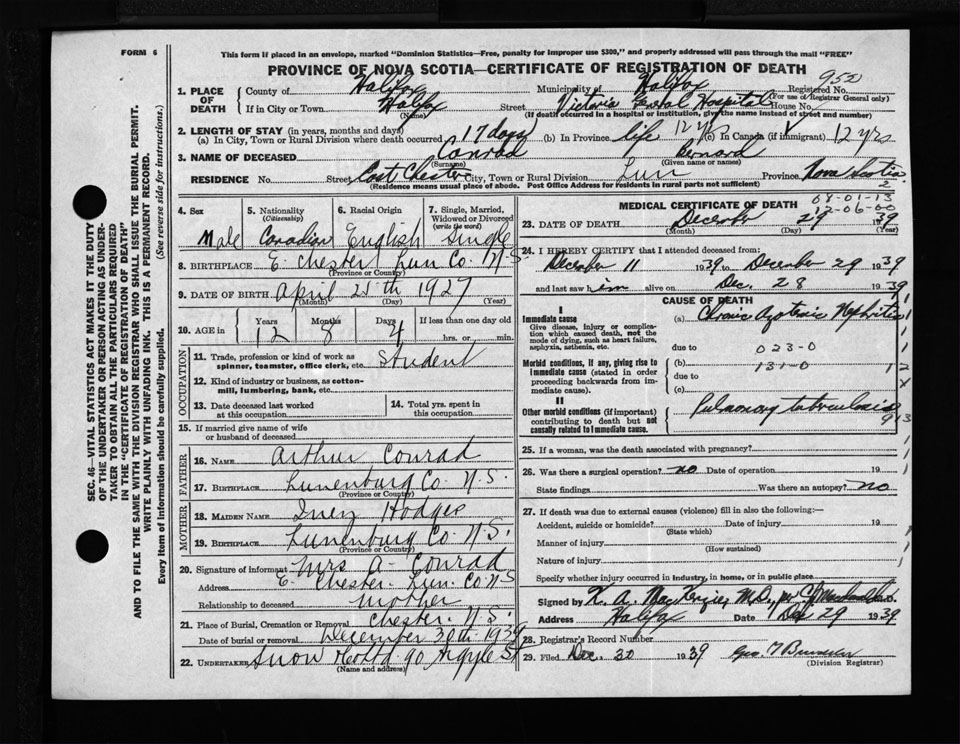 FORM 6
This form if placed in an envelope, marked "Dominion Statistics—Free, penalty for improper use $300," and properly addressed will pass through the mail "FREE"
PROVINCE OF NOVA SCOTIA—CERTIFICATE OF REGISTRATION OF DEATH
952
1. PLACE OF DEATH County of Halifax Municipality of Halifax Registered No.
(For use of Registrar General only)
If in City or Town Halifax Street Victoria General Hospital House No.
(Name) (If death occurred in a hospital or institution, give the name instead of street and number)
2. LENGTH OF STAY (in years, months and days)
(a) In City, Town or Rural Division where death occurred 17 days (b) In Province life 12 yrs (c) In Canada (if immigrant) 12 yrs
3. NAME OF DECEASED Conrad Bernard
(Surname) (Given name or names)
RESIDENCE No. Street East Chester City, Town or Rural Division Lun Province Nova Scotia
(Residence means usual place of abode. Post Office Address for residents in rural parts not sufficient)
2
4. Sex Male
5. Nationality (Citizenship) Canadian
6. Racial Origin English
7. Single, Married, Widowed or Divorced (write the word) Single
8. BIRTHPLACE E. Chester Lun Co. N.S.
(Province or Country)
9. DATE OF BIRTH April 25th 1927
(Month) (Day) (Year)
10. AGE in Years 12 Months 8 Days 4 If less than one day old hrs. or min.
OCCUPATION
11. Trade, profession or kind of work as spinner, teamster, office clerk, etc. Student
12. Kind of industry or business, as cotton-mill, lumbering, bank, etc.
13. Date deceased last worked at this occupation
14. Total yrs. spent in this occupation
15. If married give name of wife or husband of deceased
FATHER
16. NAME Arthur Conrad
17. BIRTHPLACE Lunenburg Co. N.S.
(Province or Country)
MOTHER
18. MAIDEN NAME Inez Hodges
19. BIRTHPLACE Lunenburg Co. N.S.
(Province or Country)
20. Signature of informant Mrs A. Conrad
Address E. Chester Lun. Co. N.S
Relationship to deceased mother
21. Place of Burial, Cremation or Removal Chester N.S.
Date of burial or removal December 30th 1939
22. UNDERTAKER Snow 90 Argyle St
(Name and address)
MEDICAL CERTIFICATE OF DEATH
08-01-13
12-06-00
23. DATE OF DEATH December 29 1939
(Month) (Day) (Year)
24. I HEREBY CERTIFY that I attended deceased from:
December 11 1939 to December 29 1939
and last saw him alive on Dec. 28 1939
CAUSE OF DEATH
I
Immediate cause
Give disease, injury or complication which caused death, not the mode of dying, such as heart failure, asphyxia, asthenia, etc.
(a) Chronic Azotemic Nephritis
due to 023-0
Morbid conditions, if any, giving rise to immediate cause (stated in order proceeding backwards from immediate cause).
(b) 131-0
due to
(c)
II
Other morbid conditions (if important) contributing to death but not causally related to immediate cause.
Pulmonary tuberculosis
25. If a woman, was the death associated with pregnancy?
26. Was there a surgical operation? no Date of operation 19
State findings Was there an autopsy? no
27. If death was due to external causes (violence) fill in also the following:—
Accident, suicide or homicide? Date of injury 19
(State which)
Manner of injury
(How sustained)
Nature of injury
Specify whether injury occurred in industry, in home, or in public place
Signed by K. A. MacKenzie, M.D.
Address Halifax Date Dec 29 1939
28. Registrar's Record Number
29. Filed Dec. 30 1939 Geo. T
(Division Registrar)
SEC. 46—VITAL STATISTICS ACT MAKES IT THE DUTY
OF THE UNDERTAKER OR PERSON ACTING AS UNDER-
TAKER TO OBTAIN ALL THE PARTICULARS REQUIRED
IN THE "CERTIFICATE OF REGISTRATION OF DEATH"
AND TO FILE THE SAME WITH THE DIVISION REGISTRAR WHO SHALL ISSUE THE BURIAL PERMIT.
WRITE PLAINLY WITH UNFADING INK. THIS IS A PERMANENT RECORD.
Every item of Information should be carefully supplied. (See reverse side for instructions.)